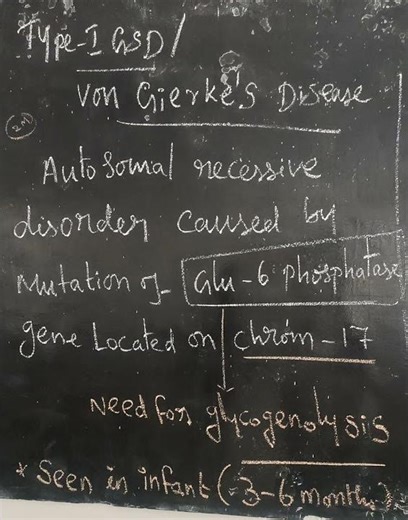 Type-I GSD/
Von Gierke's Disease
Autosomal recessive
disorder caused by
mutation of Glu-6 phosphatase
gene Located on chrom-17
Need for glycogenolysis
* Seen in infant (3-6 months)